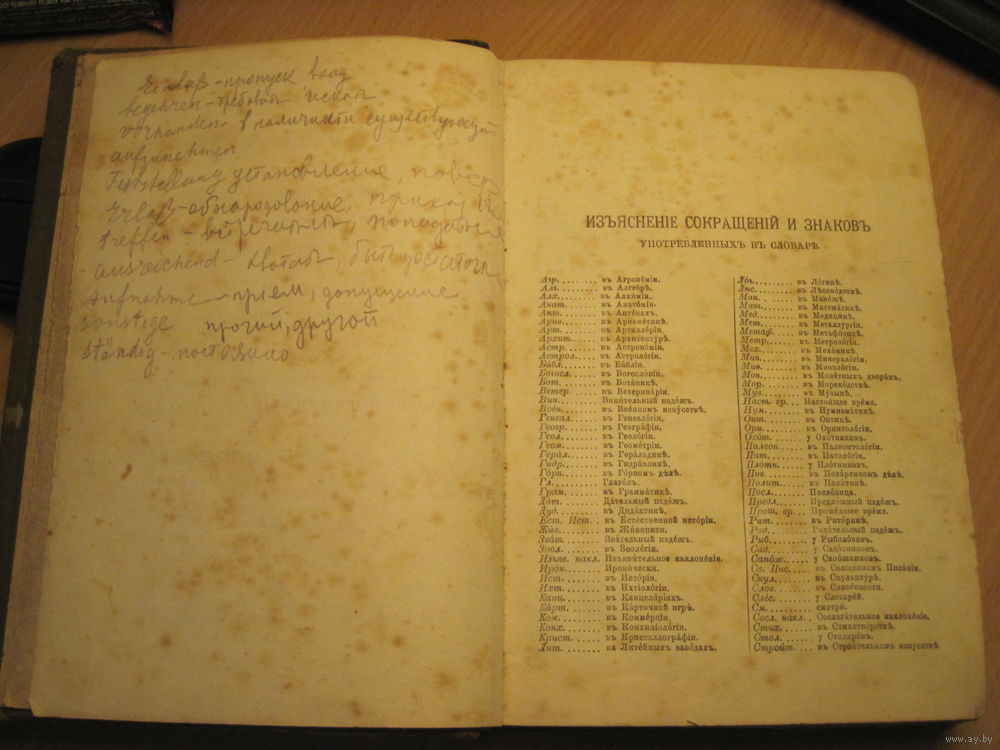 Einlaß - пропуск вход
begehren - требовать искать
vorhanden - в наличности существующий
aufzunehmen
Feststellung установление,
Erlaß - обнародование, приказ
treffen - встречать, попадать
ausreichend - хватать, быть достаточн
Aufnahme - пріем, допущение
sonstige прочий, другой
ständig - постоянно
ИЗЪЯСНЕНІЕ СОКРАЩЕНІЙ И ЗНАКОВЪ
УПОТРЕБЛЕННЫХЪ ВЪ СЛОВАРѢ.
Агр. въ Агроно́міи.
Ал. въ А́лгебрѣ.
Алх. въ Алхи́міи.
Анат. въ Анато́міи.
Апт. въ Апте́кахъ.
Ариѳ. въ Ариѳме́тикѣ.
Арт. въ Артилле́ріи.
Архит. въ Архитекту́рѣ.
Астр. въ Астроно́міи.
Астрол. въ Астроло́гіи.
Би́бл. въ Би́бліи.
Богосл. въ Богосло́віи.
Бот. въ Бота́никѣ.
Ветер. въ Ветерина́ріи.
Вин. Вини́тельный паде́жъ.
Вое́н. въ Вое́нномъ иску́сствѣ.
Генеал. въ Генеало́гіи.
Геогр. въ Геогра́фіи.
Геол. въ Геоло́гіи.
Геом. въ Геоме́тріи.
Гера́л. въ Гера́льдикѣ.
Гидр. въ Гидра́вликѣ.
Го́рн. въ Го́рномъ дѣ́лѣ.
Гл. Глаго́лъ.
Грам. въ Грамма́тикѣ.
Дат. Да́тельный паде́жъ.
Дид. въ Дида́ктикѣ.
Ест. Ист. въ Есте́ственной исто́ріи.
Жи́в. въ Жи́вописи.
Зват. Зва́тельный паде́жъ.
Зоол. въ Зооло́гіи.
Изъяв. накл. Изъяви́тельное наклоне́ніе.
Иро́н. Ирони́чески.
Ист. въ Исто́ріи.
Ихт. въ Ихтіоло́гіи.
Канц. въ Канцеля́ріяхъ.
Ка́рт. въ Ка́рточной игрѣ́.
Ком. въ Комме́рціи.
Конх. въ Конхиліоло́гіи.
Крист. въ Кристаллогра́фіи.
Лит. на Лите́йныхъ заво́дахъ.
Лог. въ Ло́гикѣ.
Лѣс. въ Лѣсово́дствѣ.
Ман. въ Мане́жѣ.
Мат. въ Матема́тикѣ.
Мед. въ Медици́нѣ.
Мет. въ Металлу́ргіи.
Метаф. въ Метафи́зикѣ.
Метр. въ Метроло́гіи.
Мех. въ Меха́никѣ.
Мин. въ Минерало́гіи.
Миѳ. въ Миѳоло́гіи.
Мон. въ Моне́тныхъ двора́хъ.
Мор. въ Морехо́дствѣ.
Муз. въ Му́зыкѣ.
Наст. вр. Настоя́щее вре́мя.
Нум. въ Нумизма́тикѣ.
Опт. въ О́птикѣ.
Орн. въ Орнитоло́гіи.
Охо́т. у Охо́тниковъ.
Палеон. въ Палеонтоло́гіи.
Пат. въ Патоло́гіи.
Пло́тн. у Пло́тниковъ.
Пов. въ Пова́ренномъ дѣ́лѣ.
Полит. въ Поли́тикѣ.
Посл. Посло́вица.
Предл. Предло́жный паде́жъ.
Прош. вр. Проше́дшее вре́мя.
Рит. въ Рито́рикѣ.
Род. Роди́тельный паде́жъ.
Рыб. у Рыболо́вовъ.
Сад. у Садо́вниковъ.
Сапо́ж. у Сапо́жниковъ.
Св. Пис. въ Свяще́нномъ Писа́ніи.
Скул. въ Скульпту́рѣ.
Слов. въ Слове́сности.
Сле́с. у Слесаре́й.
См. смотри́.
Сосл. накл. Сослага́тельное наклоне́ніе.
Стих. въ Стихотво́рствѣ.
Стол. у Столяро́въ.
Стройт. въ Строи́тельномъ иску́сствѣ.
www.ay.by